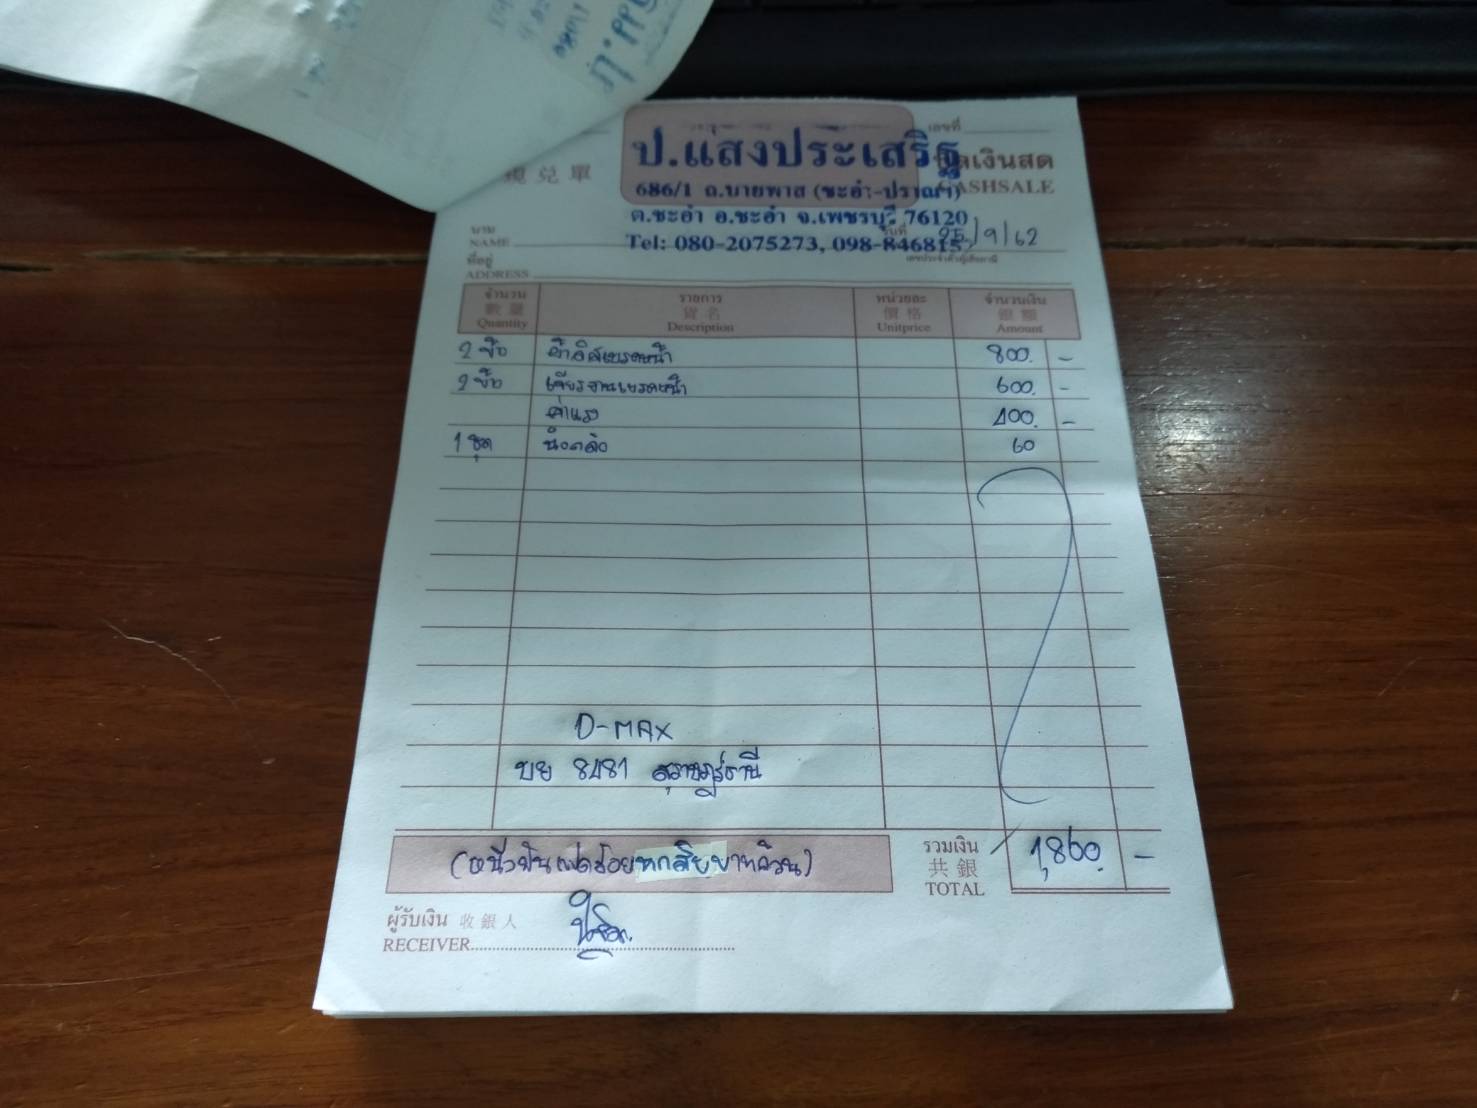 เลขที่
ป.แสงประเสริฐ
現兑單
บิลเงินสด
CASHSALE
686/1 ถ.บายพาส (ชะอำ-ปราณฯ)
ต.ชะอำ อ.ชะอำ จ.เพชรบุรี 76120
นาม
NAME
วันที่ 25/9/62
Tel: 080-2075273, 098-846815
ที่อยู่
ADDRESS
เลขประจำตัวผู้เสียภาษี
จำนวน รายการ หน่วยละ จำนวนเงิน
數量 貨名 價格 銀額
Quantity Description Unitprice Amount
2 ข้าง ผ้าดิสเบรคหน้า 800. -
2 ข้าง เจียรจานเบรคหน้า 600. -
ค่าแรง 400. -
1 ชุด 60
D-MAX
บย 8481 สุราษฎร์ธานี
(หนึ่งพันแปดร้อยหกสิบบาทถ้วน)
รวมเงิน
共銀
TOTAL
1,860. -
ผู้รับเงิน 收銀人
RECEIVER